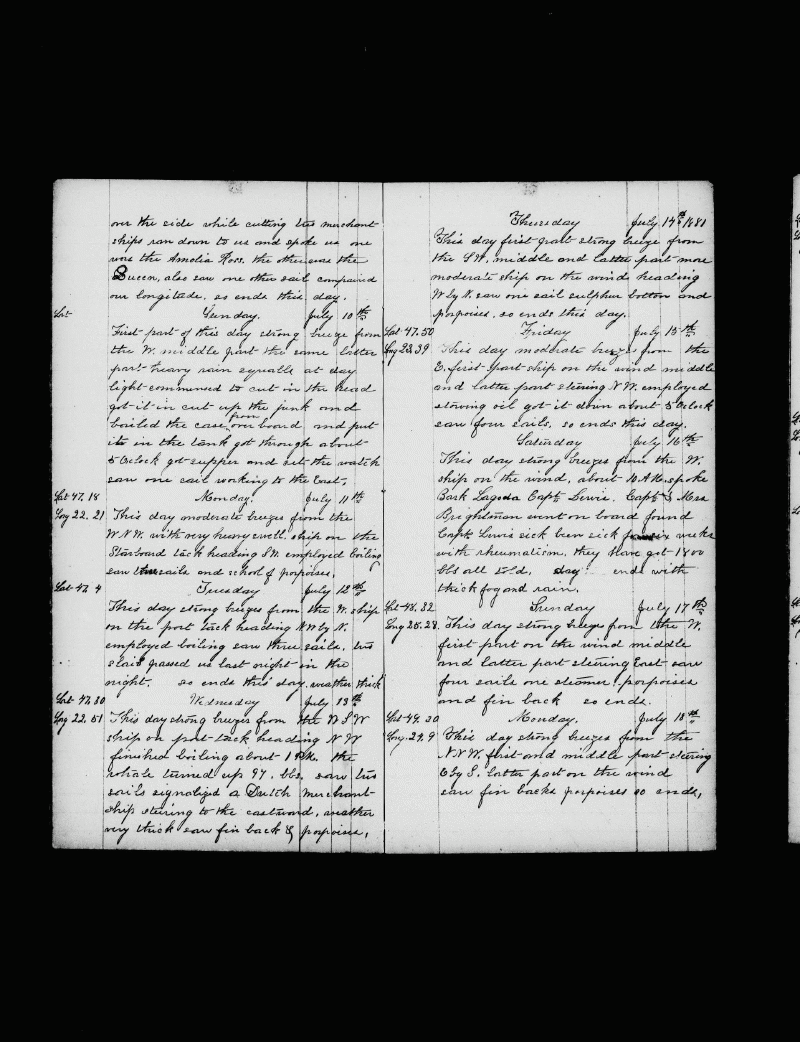 over the side while cutting two merchant
ships ran down to us and spoke us one
was the Amelia Ross. the other was the
Queen, also saw one other sail compaired
our longitude. so ends this day.
Lat Sunday. July 10th
First part of this day strong breeze from
the W. middle part the same latter
part heavy rain squalls at day
light commenced to cut in the head
got it in cut up the junk and
bailed the case from over board and put
it in the tank got through about
5 Oclock got supper and set the watch
saw one sail working to the East.
Lat 47.18 Monday. July 11th
Long 22.21 This day moderate breezes from the
W.N.W. with very heavy swell. ship on the
Starboard tack heading SW. employed boiling
saw two sails and school of porpoises.
Lat 47.4 Tuesday July 12th
This day strong breezes from the W. ship
on the port tack heading N.W by N.
employed boiling saw three sails. two
passed us last night in the
night. so ends this day. weather thick
Lat 47.30 Wednesday July 13th
Long 22.51 This day strong breezes from the W S W
ship on port tack heading N W
finished boiling about 1 P.M. the
whale turned up 97. bbs. saw two
sails signalized a Dutch merchant-
ship steering to the eastward, weather
very thick saw fin back & porpoises,
Thursday July 14th 1881
This day first part strong breeze from
the S.W. middle and latter part more
moderate ship on the wind heading
W by N. saw one sail sulphur bottom and
porpoises. so ends this day.
Lat 47.50 Friday July 15th
Long 23.39 This day moderate breezes from the
E. first part ship on the wind middle
and latter part steering N.W. employed
stowing oil got it down about 5 Oclock
saw four sails. so ends this day.
Saturday July 16th
This day strong breezes from the W.
ship on the wind. about 10 A.M. spoke
Bark Lagoda Capt. Lewis. Capt & Mrs
Brightman went on board found
Capt Lewis sick been sick for six weeks
with rheumatism. they have got 1800
bbs all told. day ends with
thick fog and rain.
Lat 48.32 Sunday July 17th
Long 25.28 This day strong breezes from the W.
first part on the wind middle
and latter part steering East. saw
four sails one steamer. porpoises
and fin back so ends.
Lat 49.30 Monday. July 18th
Long. 24.9 This day strong breezes from the
N.N.W. first and middle part steering
E by S. latter part on the wind
saw fin backs porpoises so ends,